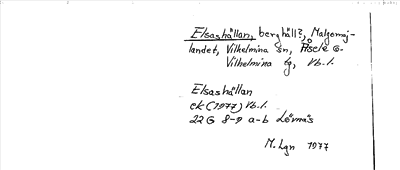 Elsashällan, berghäll?, Malgomaj-
landet, Vilhelmina sn, Åsele o.
Vilhelmina tg, Vb.l.
Elsashällan
ek (1977) Vb.l.
22 G 8-9 a-b Lövnäs
M. Lgn 1977